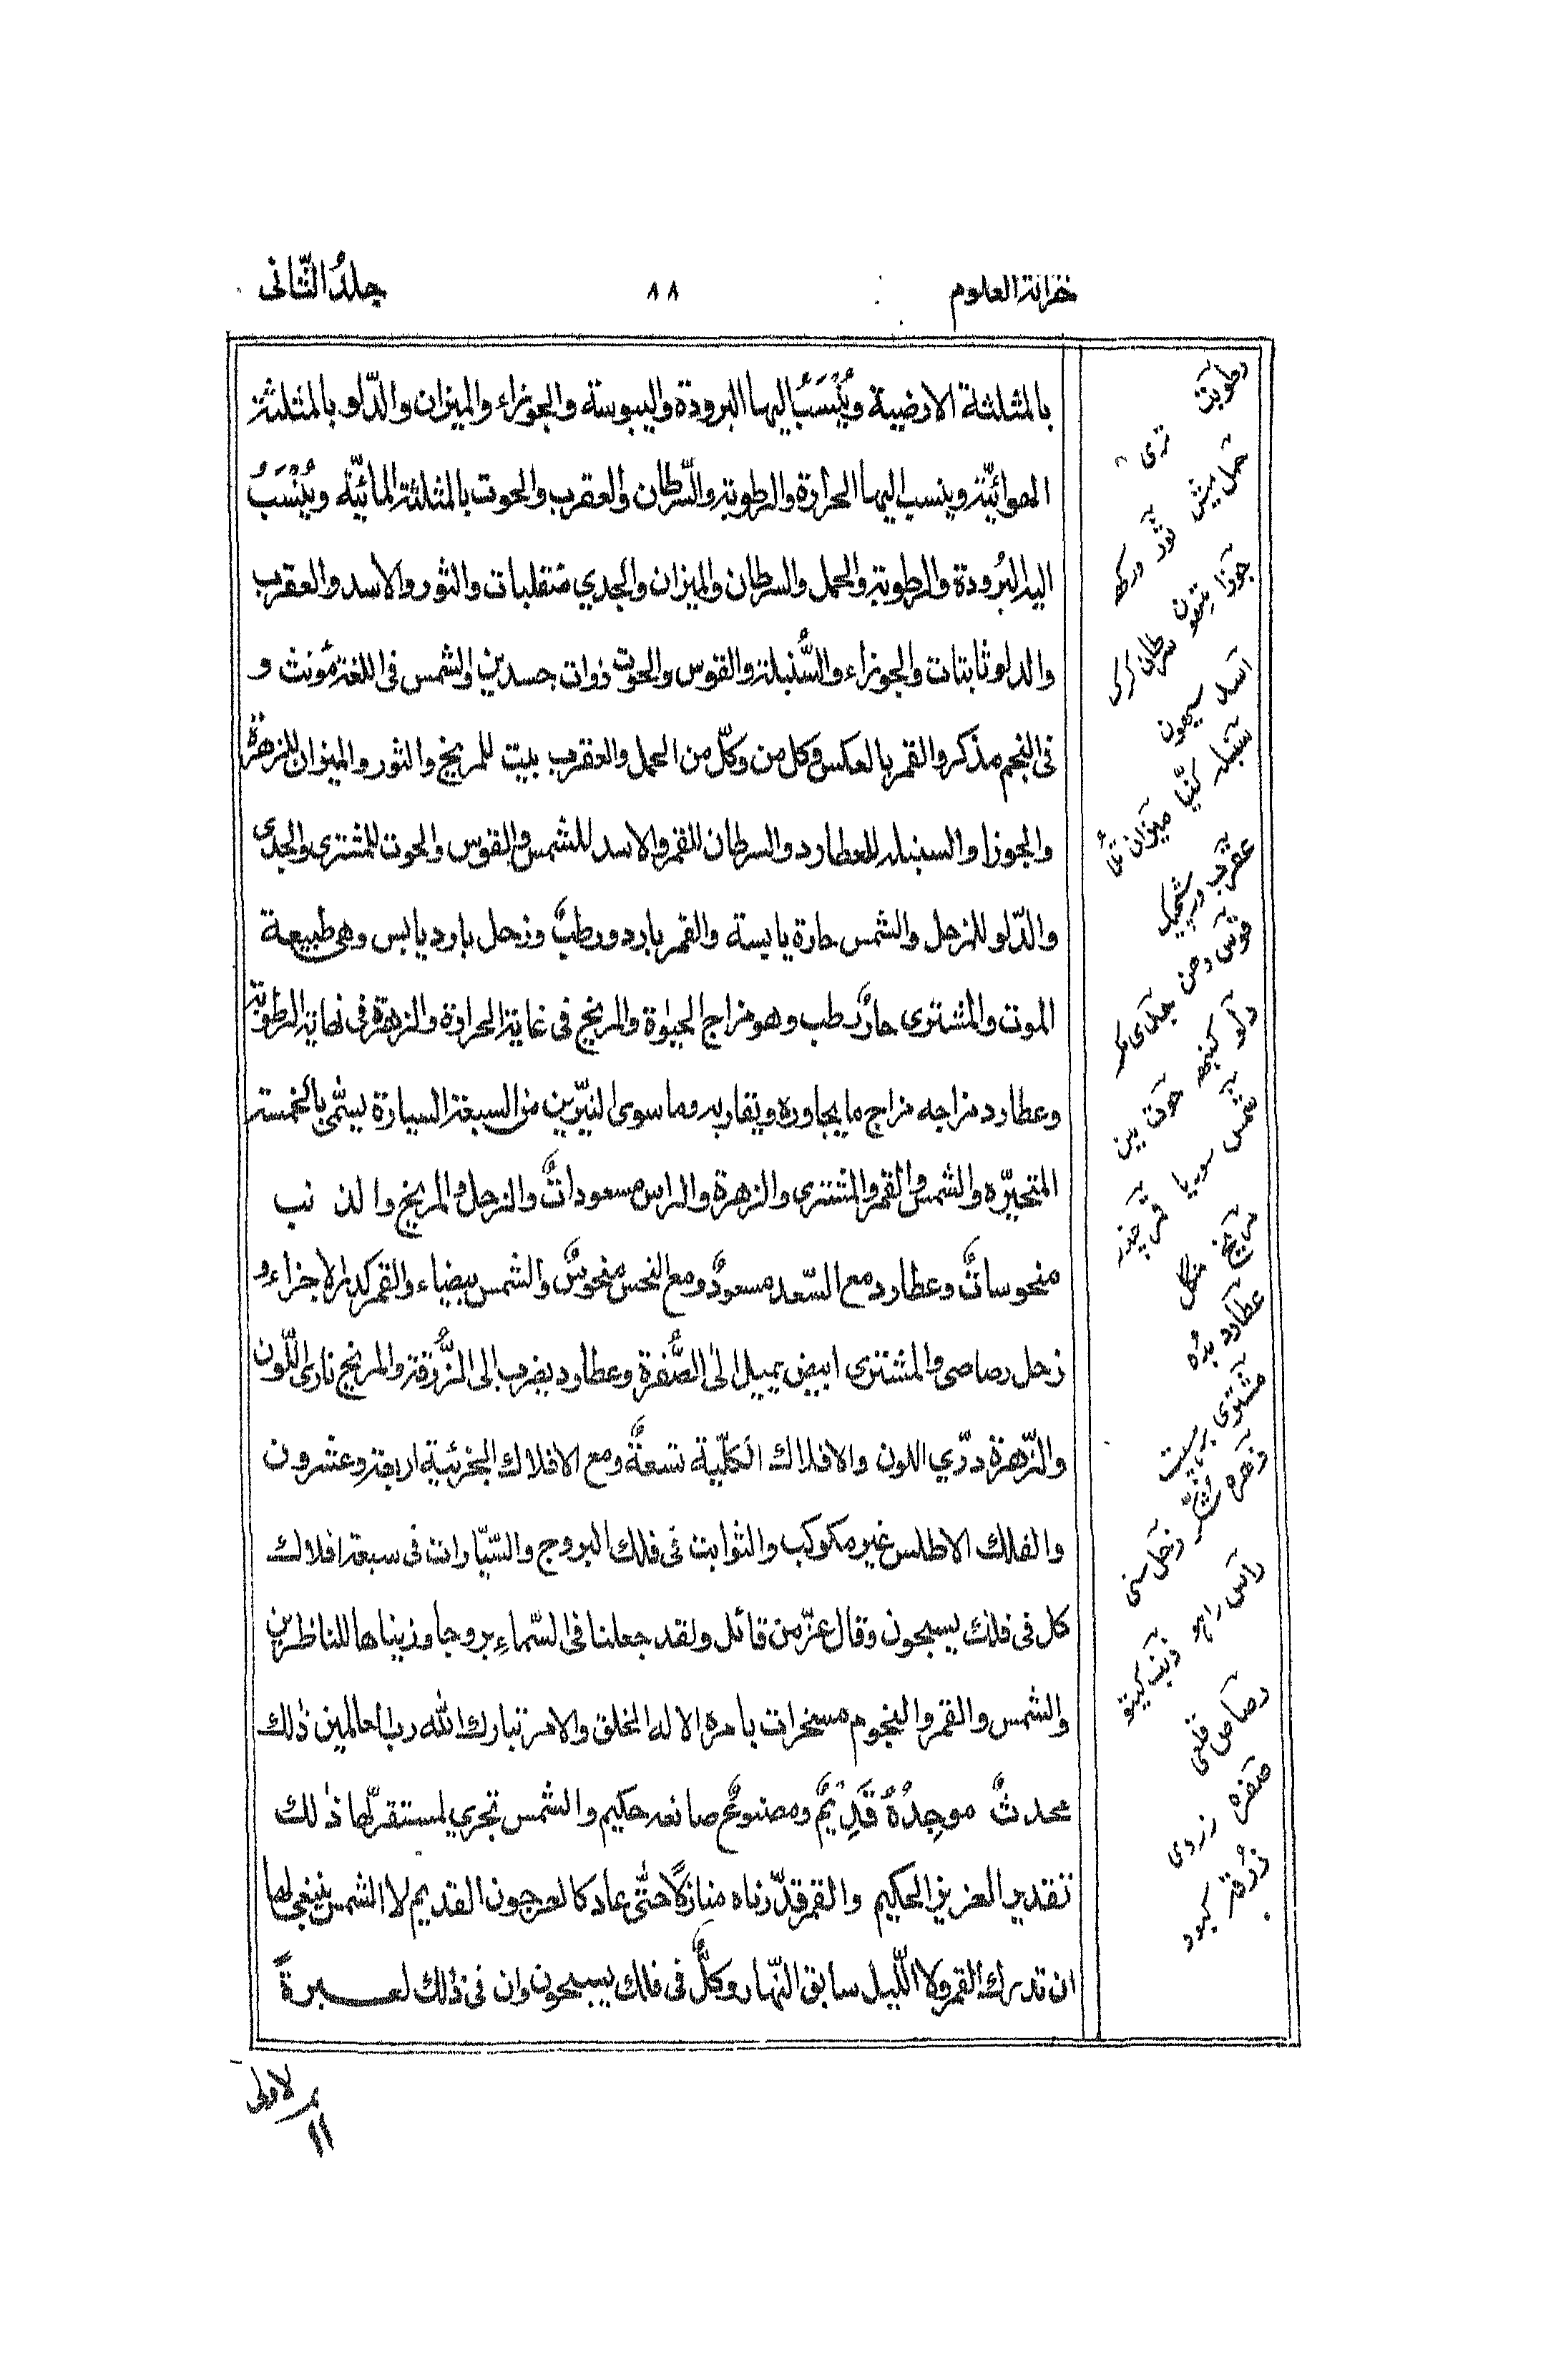 خزانة العلوم
۸۸
جلدُ الثّانى
بالمثلثة الارضية ويُنْسَبُ اليها البرودة واليبوسة والجوزاء والميزان والدّلو بالمثلثة
الهوائيّة وينسب اليها الحرارة والرطوبة والسّرطان والعقرب والحوت بالمثلثة المائيّة ويُنْسَبُ
اليه البُرودة والرطوبة والحمل والسرطان والميزان والجدي منقلبات والثور والاسد والعقرب
والدلو ثابتات والجوزاء والسُّنبلة والقوس والحوت ذوات جسدين والشمس فى اللغة مؤنث و
فى النجم مذكر والقمر بالعكس وكل من وكلّ من الحمل والعقرب بيت للمريخ والثور والميزان للزهرة
والجوزا والسنبله للعطارد والسرطان للقمر والاسد للشمس والقوس والحوت للمشترى والجدى
والدّلو للزحل والشمس حارة يابسة والقمر بارد ورطبٌ وزحل بارد يابس وهى طبيعة
الموت والمشترى حارٌ رطب وهو مزاج الحيوة والمريخ فى غاية الحرارة والزهرة فى نهاية الرطوبة
وعطارد مزاجه مزاج ما يجاوره ويقاربه وما سوى النيّرين من السبعة السيارة يسمّى بالخمسة
المتحيّره والشمس والقمر والمشترى والزهرة والراس مسعوداتٌ والزحل والمريخ والذ نب
منحوساتٌ وعطارد مع السّعد مسعودٌ ومع النحس منحوسٌ والشمس بيضاء والقمر كدر الاجزاء و
زحل رصاصى والمشترى ابيض يميل الى الصُّفرة وعطارد يضرب الى الزُّرقة والمريخ نارى اللّون
والزّهرة درّي اللون والافلاك الكلّية تسعةٌ ومع الافلاك الجزئية اربعة وعشرون
والفلك الاطلس غير مكوكب والثوابت فى فلك البروج والسّيّارات فى سبعة افلاك
كل فى فلك يسبحون وقال عزّ من قائل ولقد جعلنا فى السّماءِ بروجا وزيناها للناظرين
والشمس والقمر والنجوم مسخرات بامره الا له الخلق والامر تبارك الله رب العالمين ذلك
محدثٌ موجِدُهٗ قَدِيْمٌ ومصنوعٌ صانعه حكيم والشمس تجري لمستقر لها ذلك
تقدير العزيز الحكيم والقمر قدّرناه منازلًا حتّى عاد كالعرجون القديم لا الشمس ينبغى لها
ان تدرك القمر ولا اللّيل سابق النّهار وكلٌّ فى فلك يسبحون وان فى ذلك لعبرةً
لاولى
رطوبت ترى
حمل ميش ثور وركھ
جوزا متهون سرطان كرك
اسد سيهون
سنبله كنيا ميزان تلا
عقرب ورشچيك
قوس دهن جدى مكر
دلو كنبھ حوت مين
شمس سوريا قمر چندر
مريخ منگل
عطارد بده
مشترى برهسپت
زهره شكر زحل سنى
راس راہو ذنب كيتو
رصاص قلعى
صفره زردى
زرقه كبود